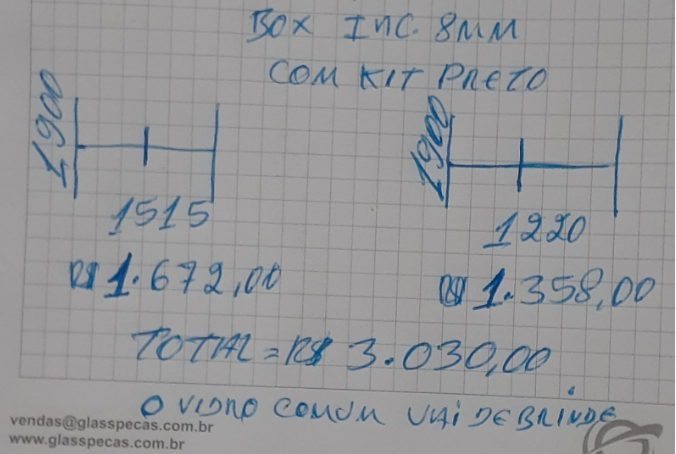 BOX INC. 8MM
COM KIT PRETO
1900
1900
1515
1220
R$ 1.672,00
R$ 1.358,00
TOTAL = R$ 3.030,00
O VIDRO COMUM VAI DE BRINDE
vendas@glasspecas.com.br
www.glasspecas.com.br